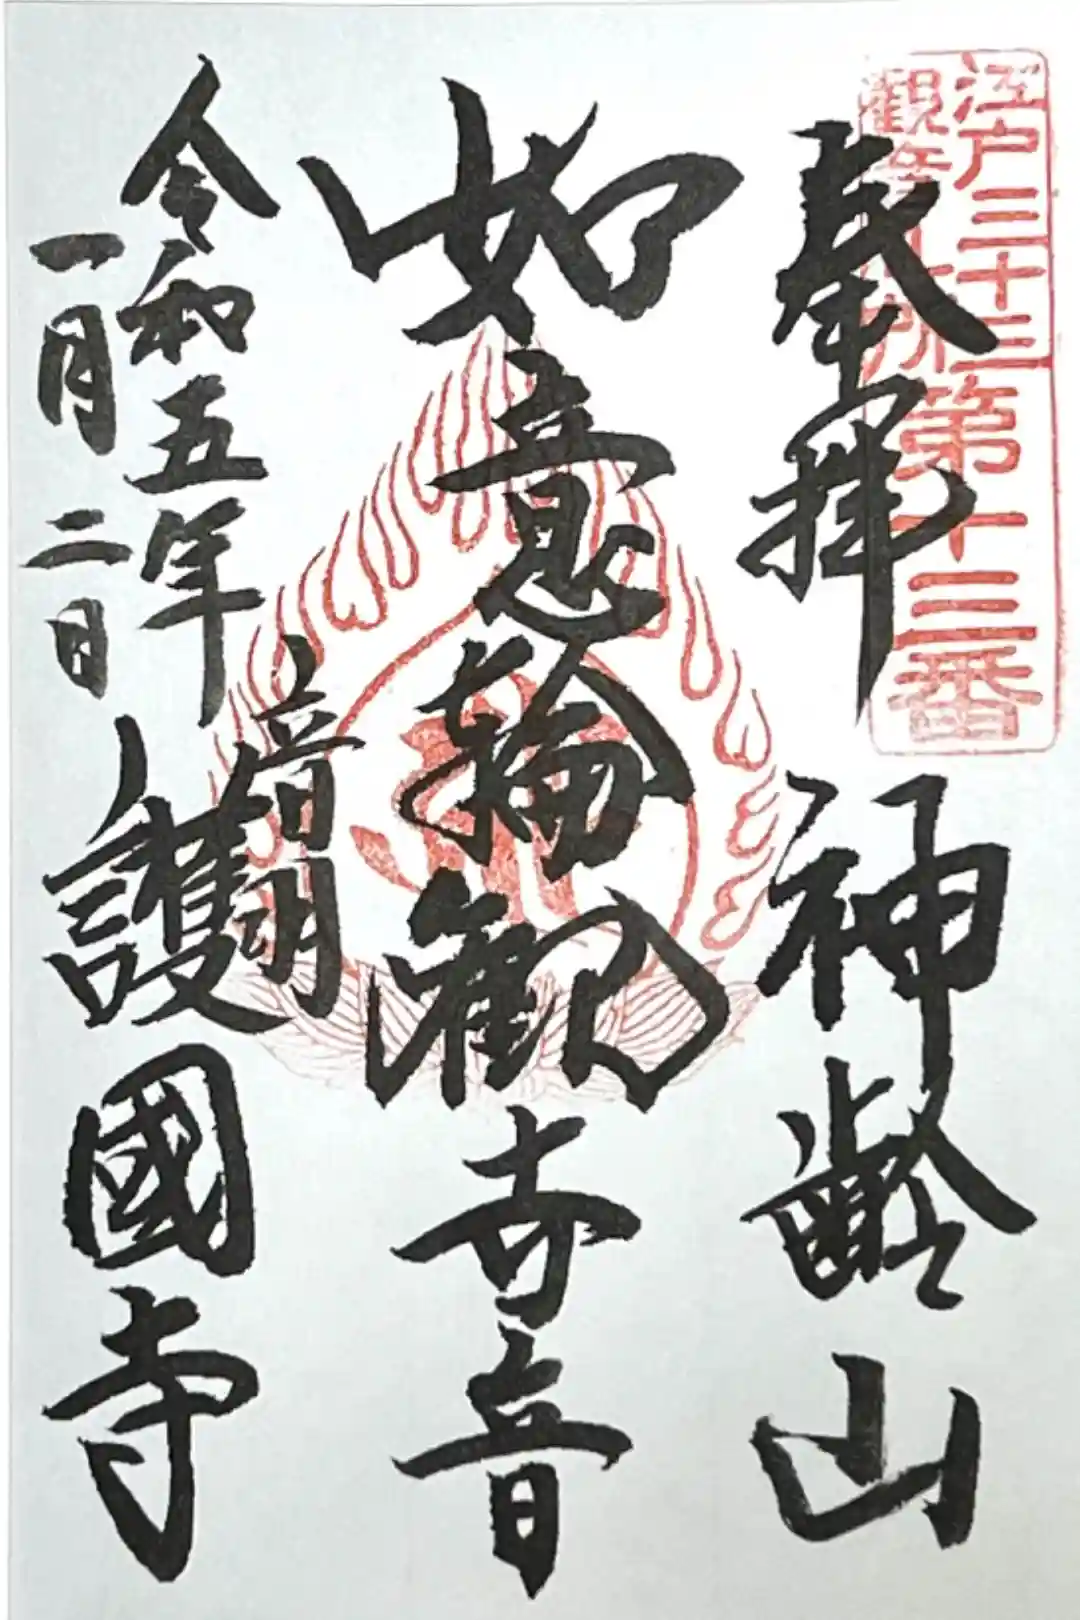 江戸三十三
観音札所
第十三番
奉拝
神齢山
如意輪観世音
令和五年
一月二日
音羽
護國寺